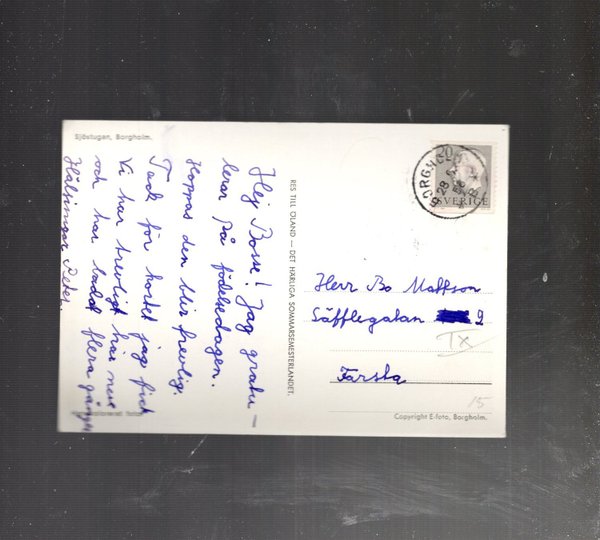 Sjöstugan, Borgholm.
Hej Bosse! Jag gratu-
lerar på födelsedagen.
Hoppas den blir trevlig.
Tack för kortet jag fick
Vi har trevligt här nere
och har badat flera gånger
Hälsningar Peter.
RES TILL ÖLAND — DET HÄRLIGA SOMMARSEMESTERLANDET.
BORGHOLM
28
SVERIGE
Herr Bo Mattson
Säfflegatan 9
TX
Farsta
15
Copyright E-foto, Borgholm.